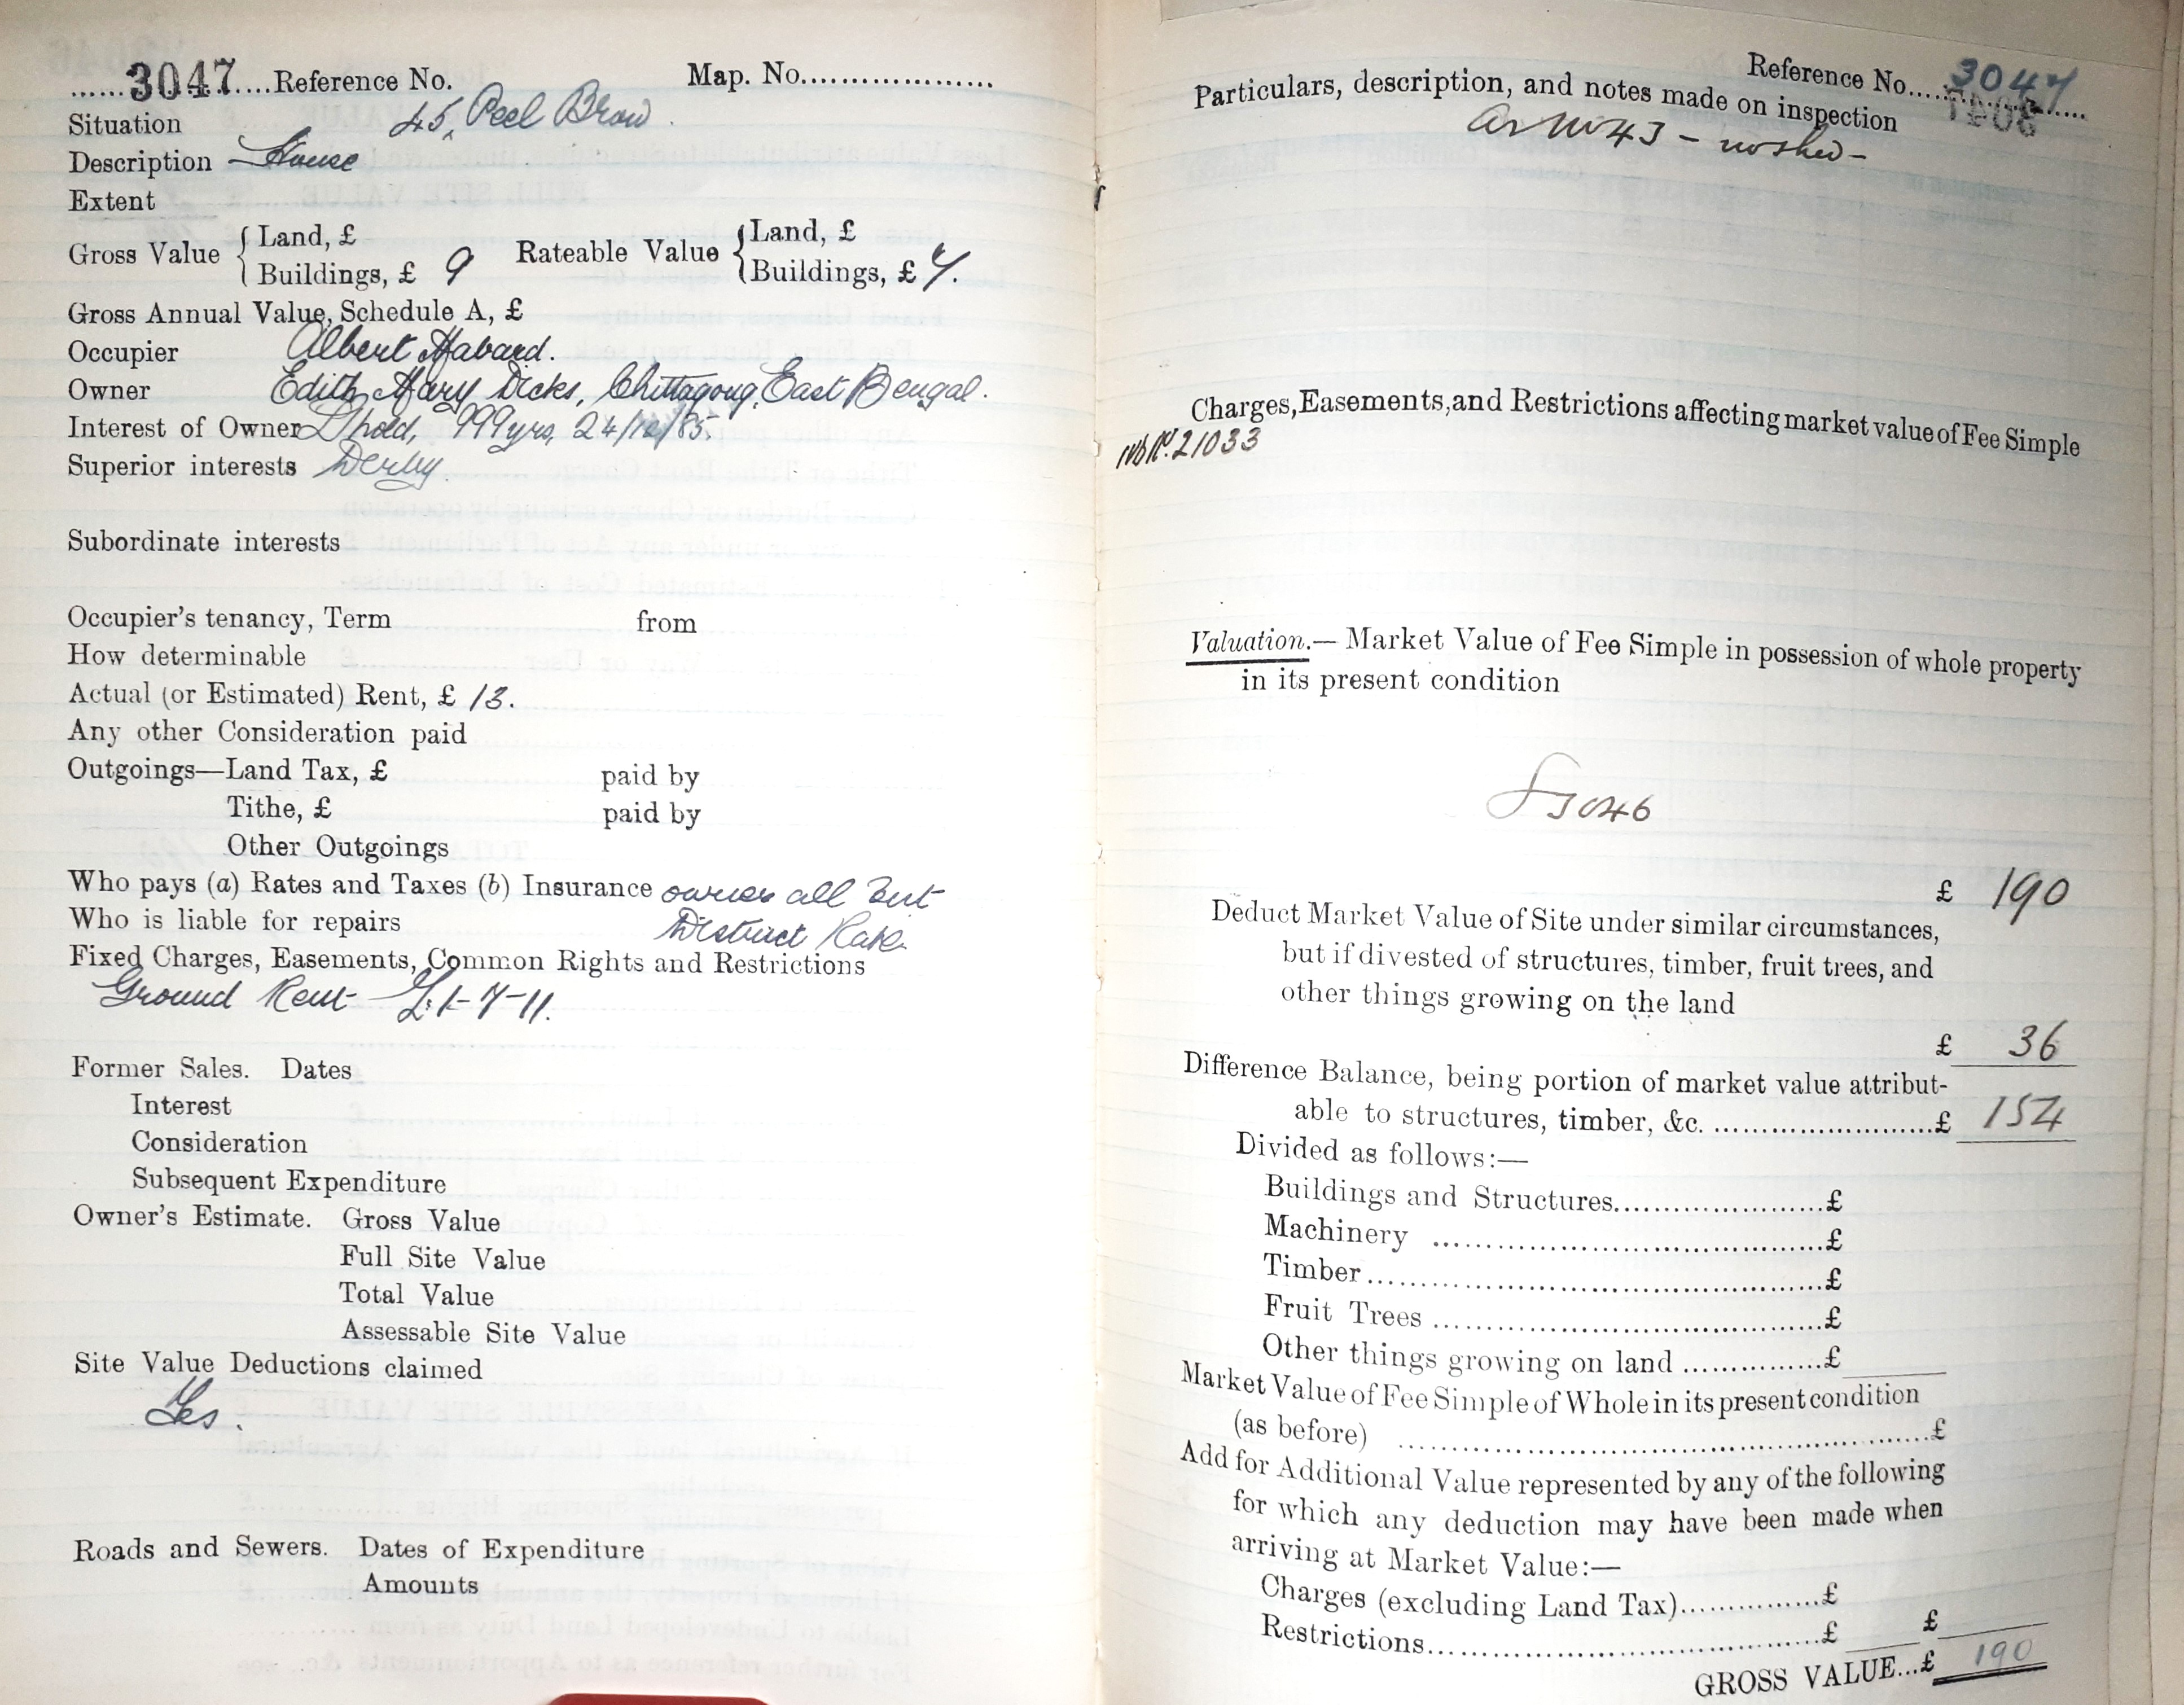 ......3047....Reference No. Map. No....................
Situation 45, Peel Brow.
Description House
Extent
Gross Value { Land, £ Rateable Value { Land, £
Buildings, £ 9 Buildings, £ 7.
Gross Annual Value, Schedule A, £
Occupier Albert
Owner Edith Mary Dicks, Chittagong, East Bengal.
Interest of Owner L'hold, 999 yrs, 24/12/85.
Superior interests Derby.
Subordinate interests
Occupier's tenancy, Term from
How determinable
Actual (or Estimated) Rent, £ 13.
Any other Consideration paid
Outgoings—Land Tax, £ paid by
Tithe, £ paid by
Other Outgoings
Who pays (a) Rates and Taxes (b) Insurance owner all but
Who is liable for repairs District Rate.
Fixed Charges, Easements, Common Rights and Restrictions
Ground Rent £1-7-11.
Former Sales. Dates
Interest
Consideration
Subsequent Expenditure
Owner's Estimate. Gross Value
Full Site Value
Total Value
Assessable Site Value
Site Value Deductions claimed
Yes.
Roads and Sewers. Dates of Expenditure
Amounts
Reference No. 3047
Particulars, description, and notes made on inspection
as No 43 – no shed –
Charges, Easements, and Restrictions affecting market value of Fee Simple
21033
Valuation.— Market Value of Fee Simple in possession of whole property
in its present condition
3046
£ 190
Deduct Market Value of Site under similar circumstances,
but if divested of structures, timber, fruit trees, and
other things growing on the land
£ 36
Difference Balance, being portion of market value attribut-
able to structures, timber, &c. ..........................£ 154
Divided as follows:—
Buildings and Structures........................£
Machinery ............................................£
Timber....................................................£
Fruit Trees ............................................£
Other things growing on land ................£
Market Value of Fee Simple of Whole in its present condition
(as before) ............................................................£
Add for Additional Value represented by any of the following
for which any deduction may have been made when
arriving at Market Value:—
Charges (excluding Land Tax)................£
Restrictions............................................£ £
GROSS VALUE...£ 190